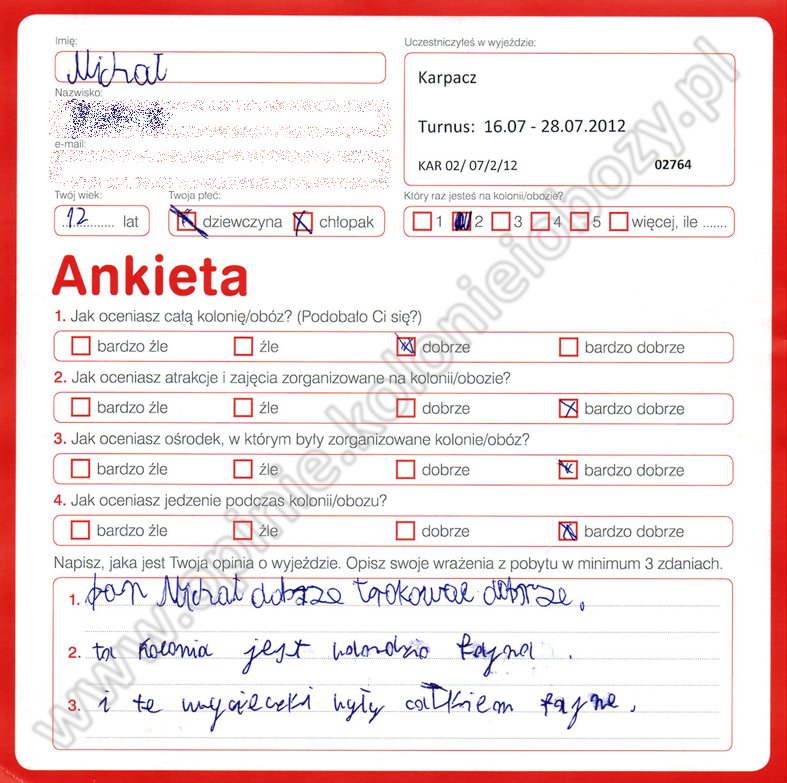 Imię:
Michał
Uczestniczyłeś w wyjeździe:
Karpacz
Turnus: 16.07 - 28.07.2012
KAR 02/ 07/2/12 02764
Nazwisko:
e-mail:
Twój wiek:
12 lat
Twoja płeć:
dziewczyna chłopak
Który raz jesteś na kolonii/obozie?
1 2 3 4 5 więcej, ile .......
Ankieta
1. Jak oceniasz całą kolonię/obóz? (Podobało Ci się?)
bardzo źle źle dobrze bardzo dobrze
2. Jak oceniasz atrakcje i zajęcia zorganizowane na kolonii/obozie?
bardzo źle źle dobrze bardzo dobrze
3. Jak oceniasz ośrodek, w którym były zorganizowane kolonie/obóz?
bardzo źle źle dobrze bardzo dobrze
4. Jak oceniasz jedzenie podczas kolonii/obozu?
bardzo źle źle dobrze bardzo dobrze
Napisz, jaka jest Twoja opinia o wyjeździe. Opisz swoje wrażenia z pobytu w minimum 3 zdaniach.
1. pan Michał dobrze dobrze.
2. ta kolonia jest fajna.
3. i te wycieczki były całkiem fajne.
www.opinie.kolonieiobozy.pl